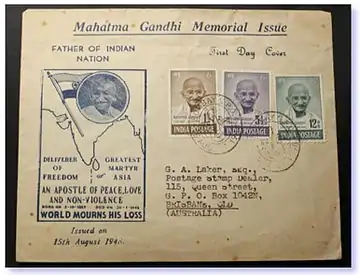 Mahatma Gandhi Memorial Issue
FATHER OF INDIAN
NATION
First Day Cover
DELIVERER GREATEST
OF MARTYR
FREEDOM OF ASIA
AN APOSTLE OF PEACE, LOVE
AND NON-VIOLENCE
WORLD MOURNS HIS LOSS
Issued on
15th August 1948.
INDIA POSTAGE
INDIA POSTAGE
INDIA POSTAGE
G. A. Laker, Esq.,
Postage Stamp Dealer,
115, Queen Street,
G. P. O. Box 1042N,
BRISBANE, QLD
(AUSTRALIA)